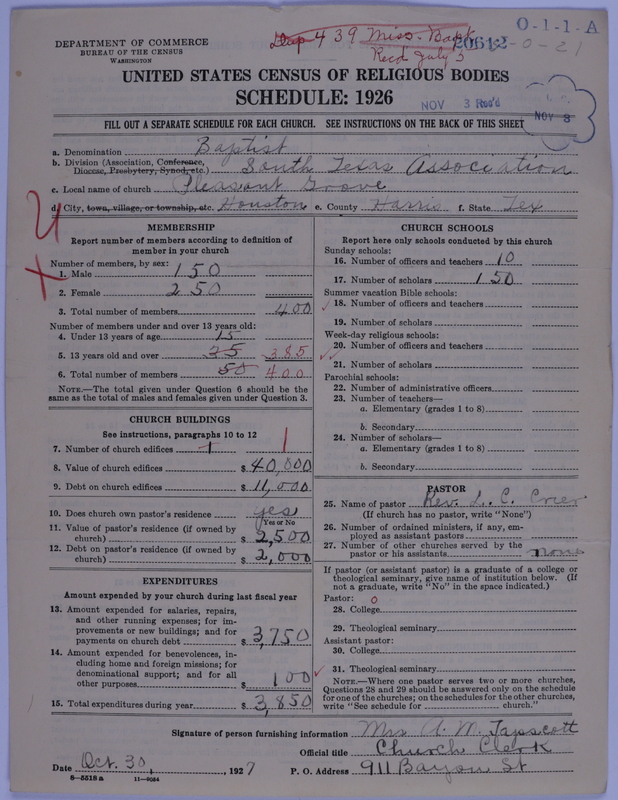 O-1-1-A
439 Miss. Bapt
Recd July 5
20612
DEPARTMENT OF COMMERCE
BUREAU OF THE CENSUS
WASHINGTON
UNITED STATES CENSUS OF RELIGIOUS BODIES
SCHEDULE: 1926
NOV 3 Rec'd
NOV 3
FILL OUT A SEPARATE SCHEDULE FOR EACH CHURCH. SEE INSTRUCTIONS ON THE BACK OF THIS SHEET
a. Denomination Baptist
b. Division (Association, Conference, Diocese, Presbytery, Synod, etc.) South Texas Association
c. Local name of church Pleasant Grove
d. City, town, village, or township, etc. Houston e. County Harris f. State Tex
MEMBERSHIP
Report number of members according to definition of
member in your church
Number of members, by sex:
1. Male 150
2. Female 250
3. Total number of members 400
Number of members under and over 13 years old:
4. Under 13 years of age 15
5. 13 years old and over 35 385
6. Total number of members 50 400
NOTE.—The total given under Question 6 should be the
same as the total of males and females given under Question 3.
CHURCH BUILDINGS
See instructions, paragraphs 10 to 12
7. Number of church edifices 1 1
8. Value of church edifices $ 40,000
9. Debt on church edifices $ 11,000
10. Does church own pastor's residence yes
Yes or No
11. Value of pastor's residence (if owned by
church) $ 2,500
12. Debt on pastor's residence (if owned by
church) $ 2,000
EXPENDITURES
Amount expended by your church during last fiscal year
13. Amount expended for salaries, repairs,
and other running expenses; for im-
provements or new buildings; and for
payments on church debt $ 3,750
14. Amount expended for benevolences, in-
cluding home and foreign missions; for
denominational support; and for all
other purposes $ 100
15. Total expenditures during year $ 3,850
CHURCH SCHOOLS
Report here only schools conducted by this church
Sunday schools:
16. Number of officers and teachers 10
17. Number of scholars 150
Summer vacation Bible schools:
18. Number of officers and teachers
19. Number of scholars
Week-day religious schools:
20. Number of officers and teachers
21. Number of scholars
Parochial schools:
22. Number of administrative officers
23. Number of teachers—
a. Elementary (grades 1 to 8)
b. Secondary
24. Number of scholars—
a. Elementary (grades 1 to 8)
b. Secondary
PASTOR
25. Name of pastor Rev. L. C. Crier
(If church has no pastor, write "None")
26. Number of ordained ministers, if any, em-
ployed as assistant pastors
27. Number of other churches served by the
pastor or his assistants none
If pastor (or assistant pastor) is a graduate of a college or
theological seminary, give name of institution below. (If
not a graduate, write "No" in the space indicated.)
Pastor: 0
28. College
29. Theological seminary
Assistant pastor:
30. College
31. Theological seminary
NOTE.—Where one pastor serves two or more churches,
Questions 28 and 29 should be answered only on the schedule
for one of the churches; on the schedules for the other churches,
write "See schedule for church."
Signature of person furnishing information Mrs A. M. Tapscott
Official title Church Clerk
Date Oct. 30, 1927 P. O. Address 911 Bayou St
8—5518 a 11—9034